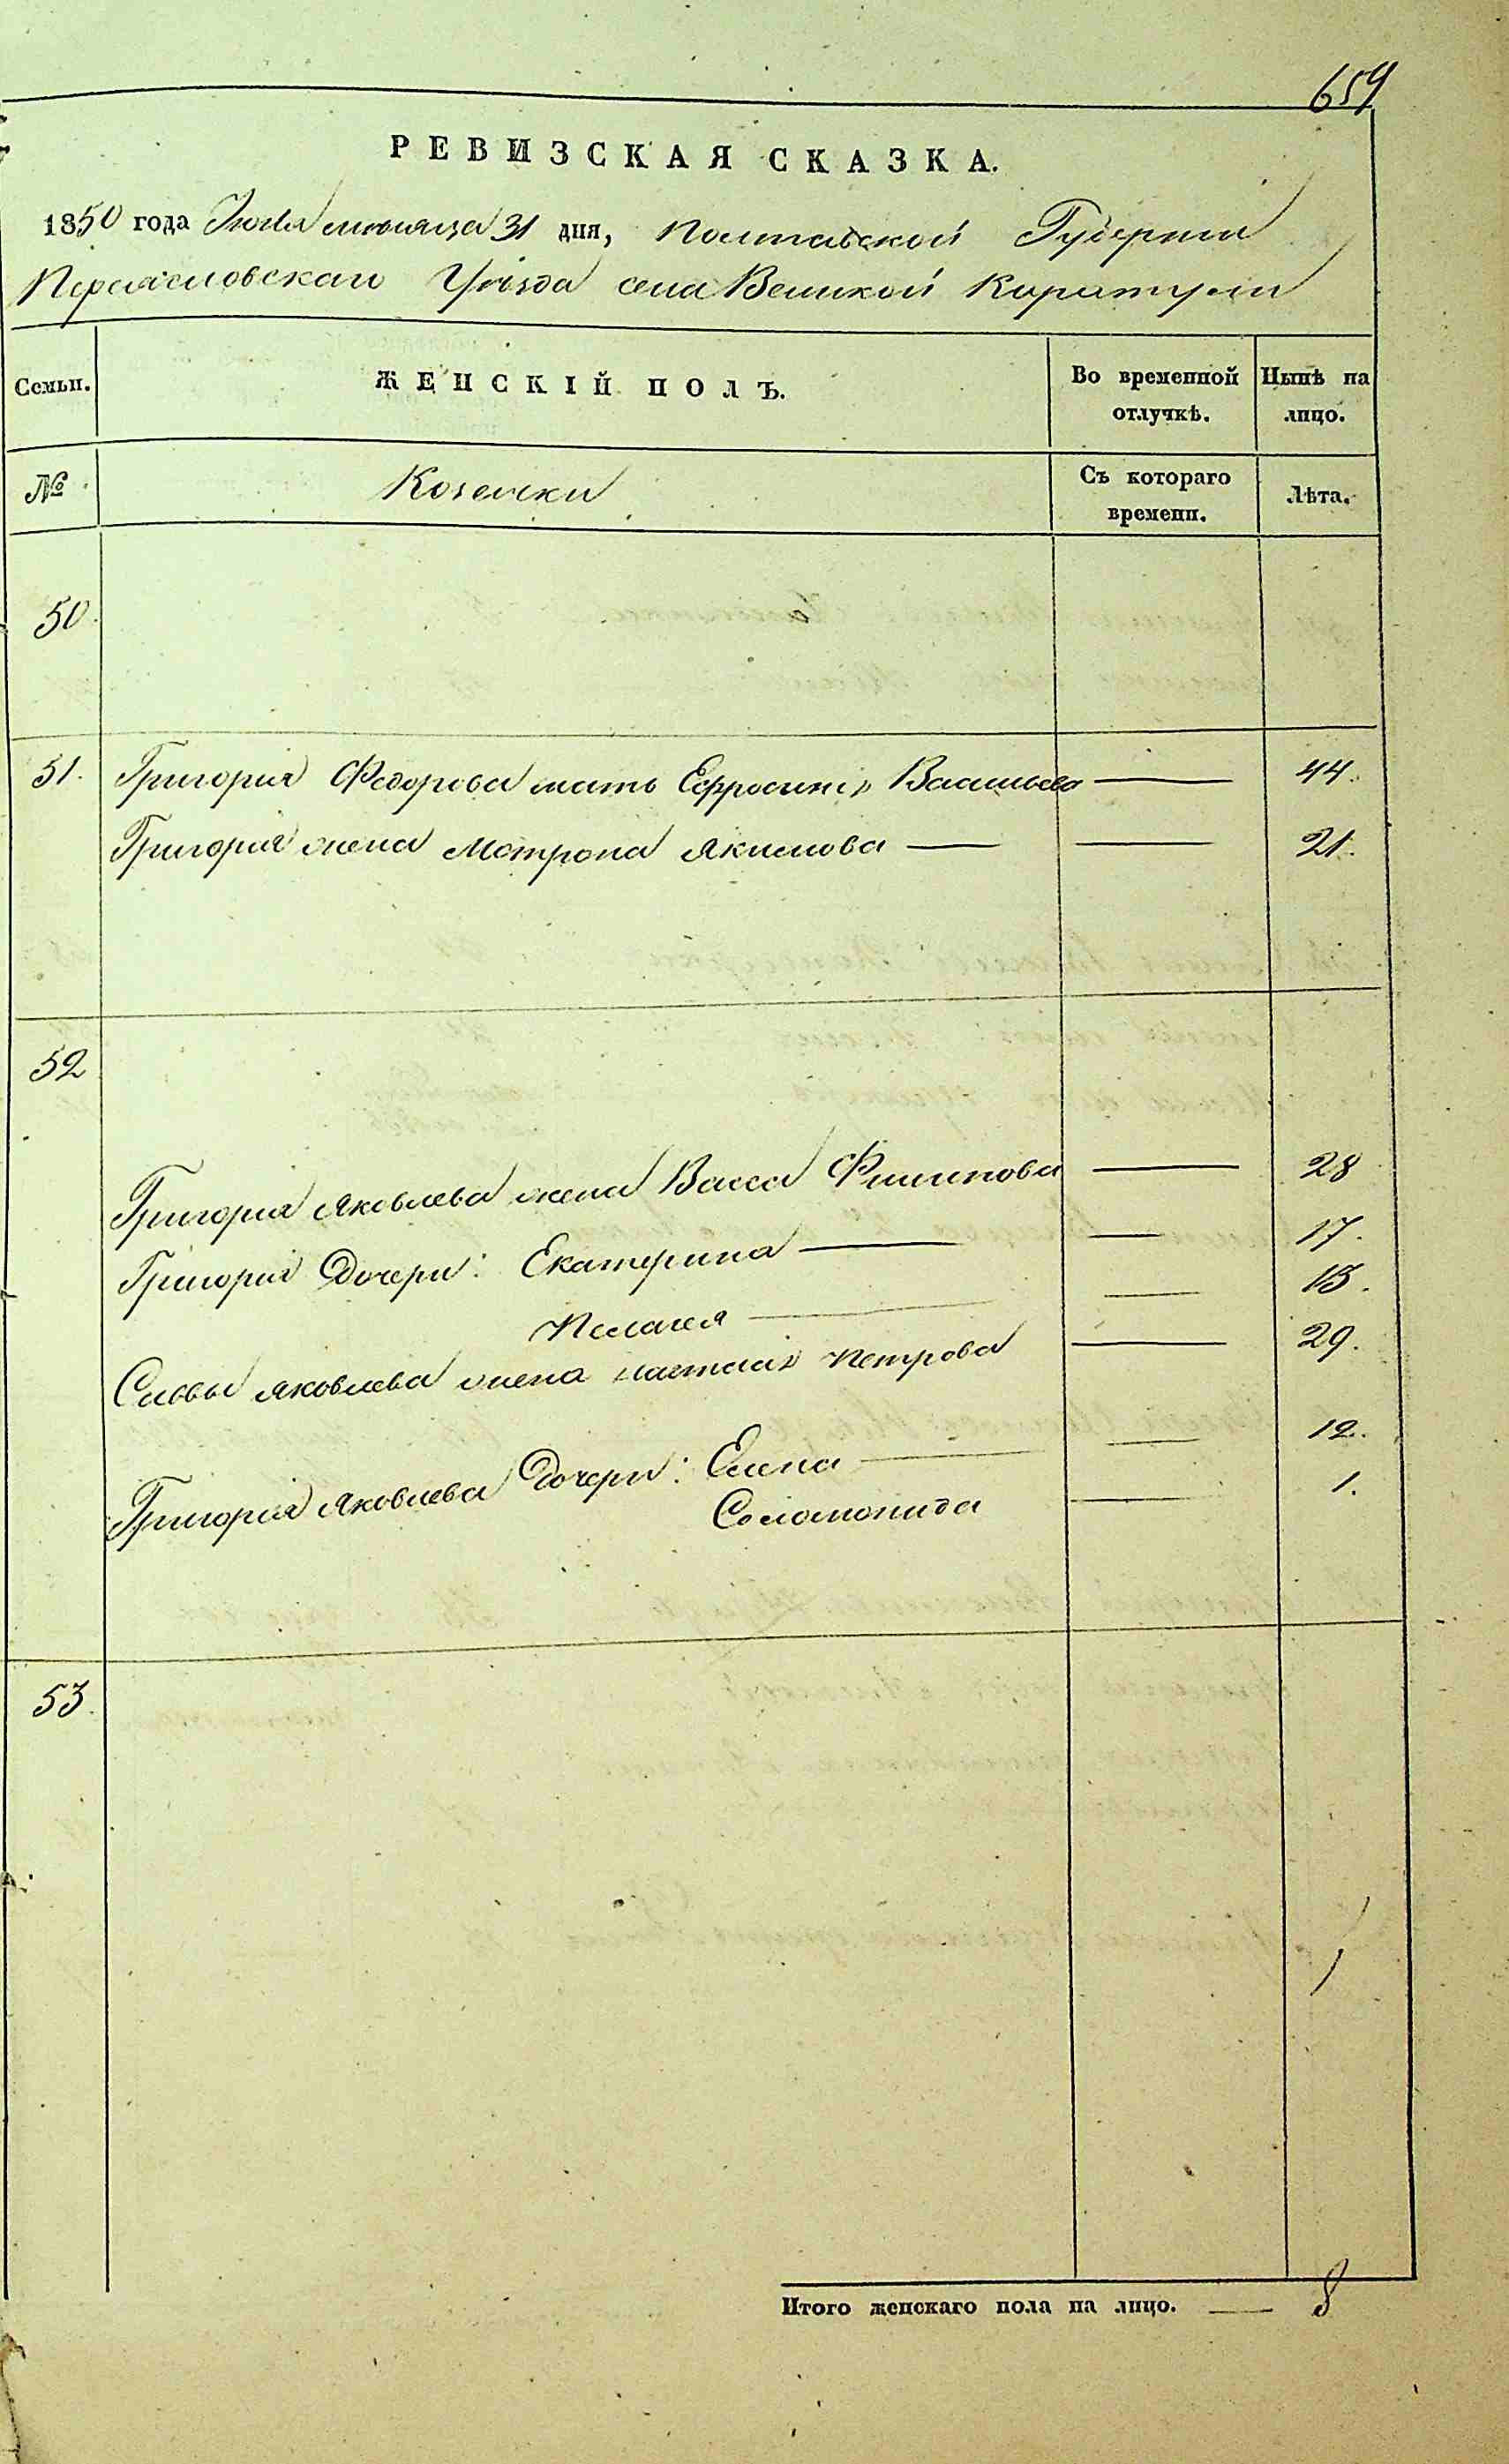 659
РЕВИЗСКАЯ СКАЗКА.
1850 года Июля мѣсяца 31 дня, Полтавской Губернии
Переясловскаго Уѣзда села Великой Каратули
Семьи. ЖЕНСКІЙ ПОЛЪ. Во временной отлучкѣ. Нынѣ на лицо.
№ Козачки Съ котораго времени. Лѣта.
50.
51. Григорія Федорова мать Ефросинія Васильева — 44.
Григорія жена Мотрона Якимова — — 21.
52
Григорія Яковлева жена Васса Филипова — 28
Григорія Дочери: Екатерина — — 17.
Пелагея — — 15.
Савы Яковлева жена Наталія Петрова — 29.
Григорія Яковлева Дочери: Елена — — 12.
Соломонида — 1.
53.
Итого женскаго пола на лицо. — 8